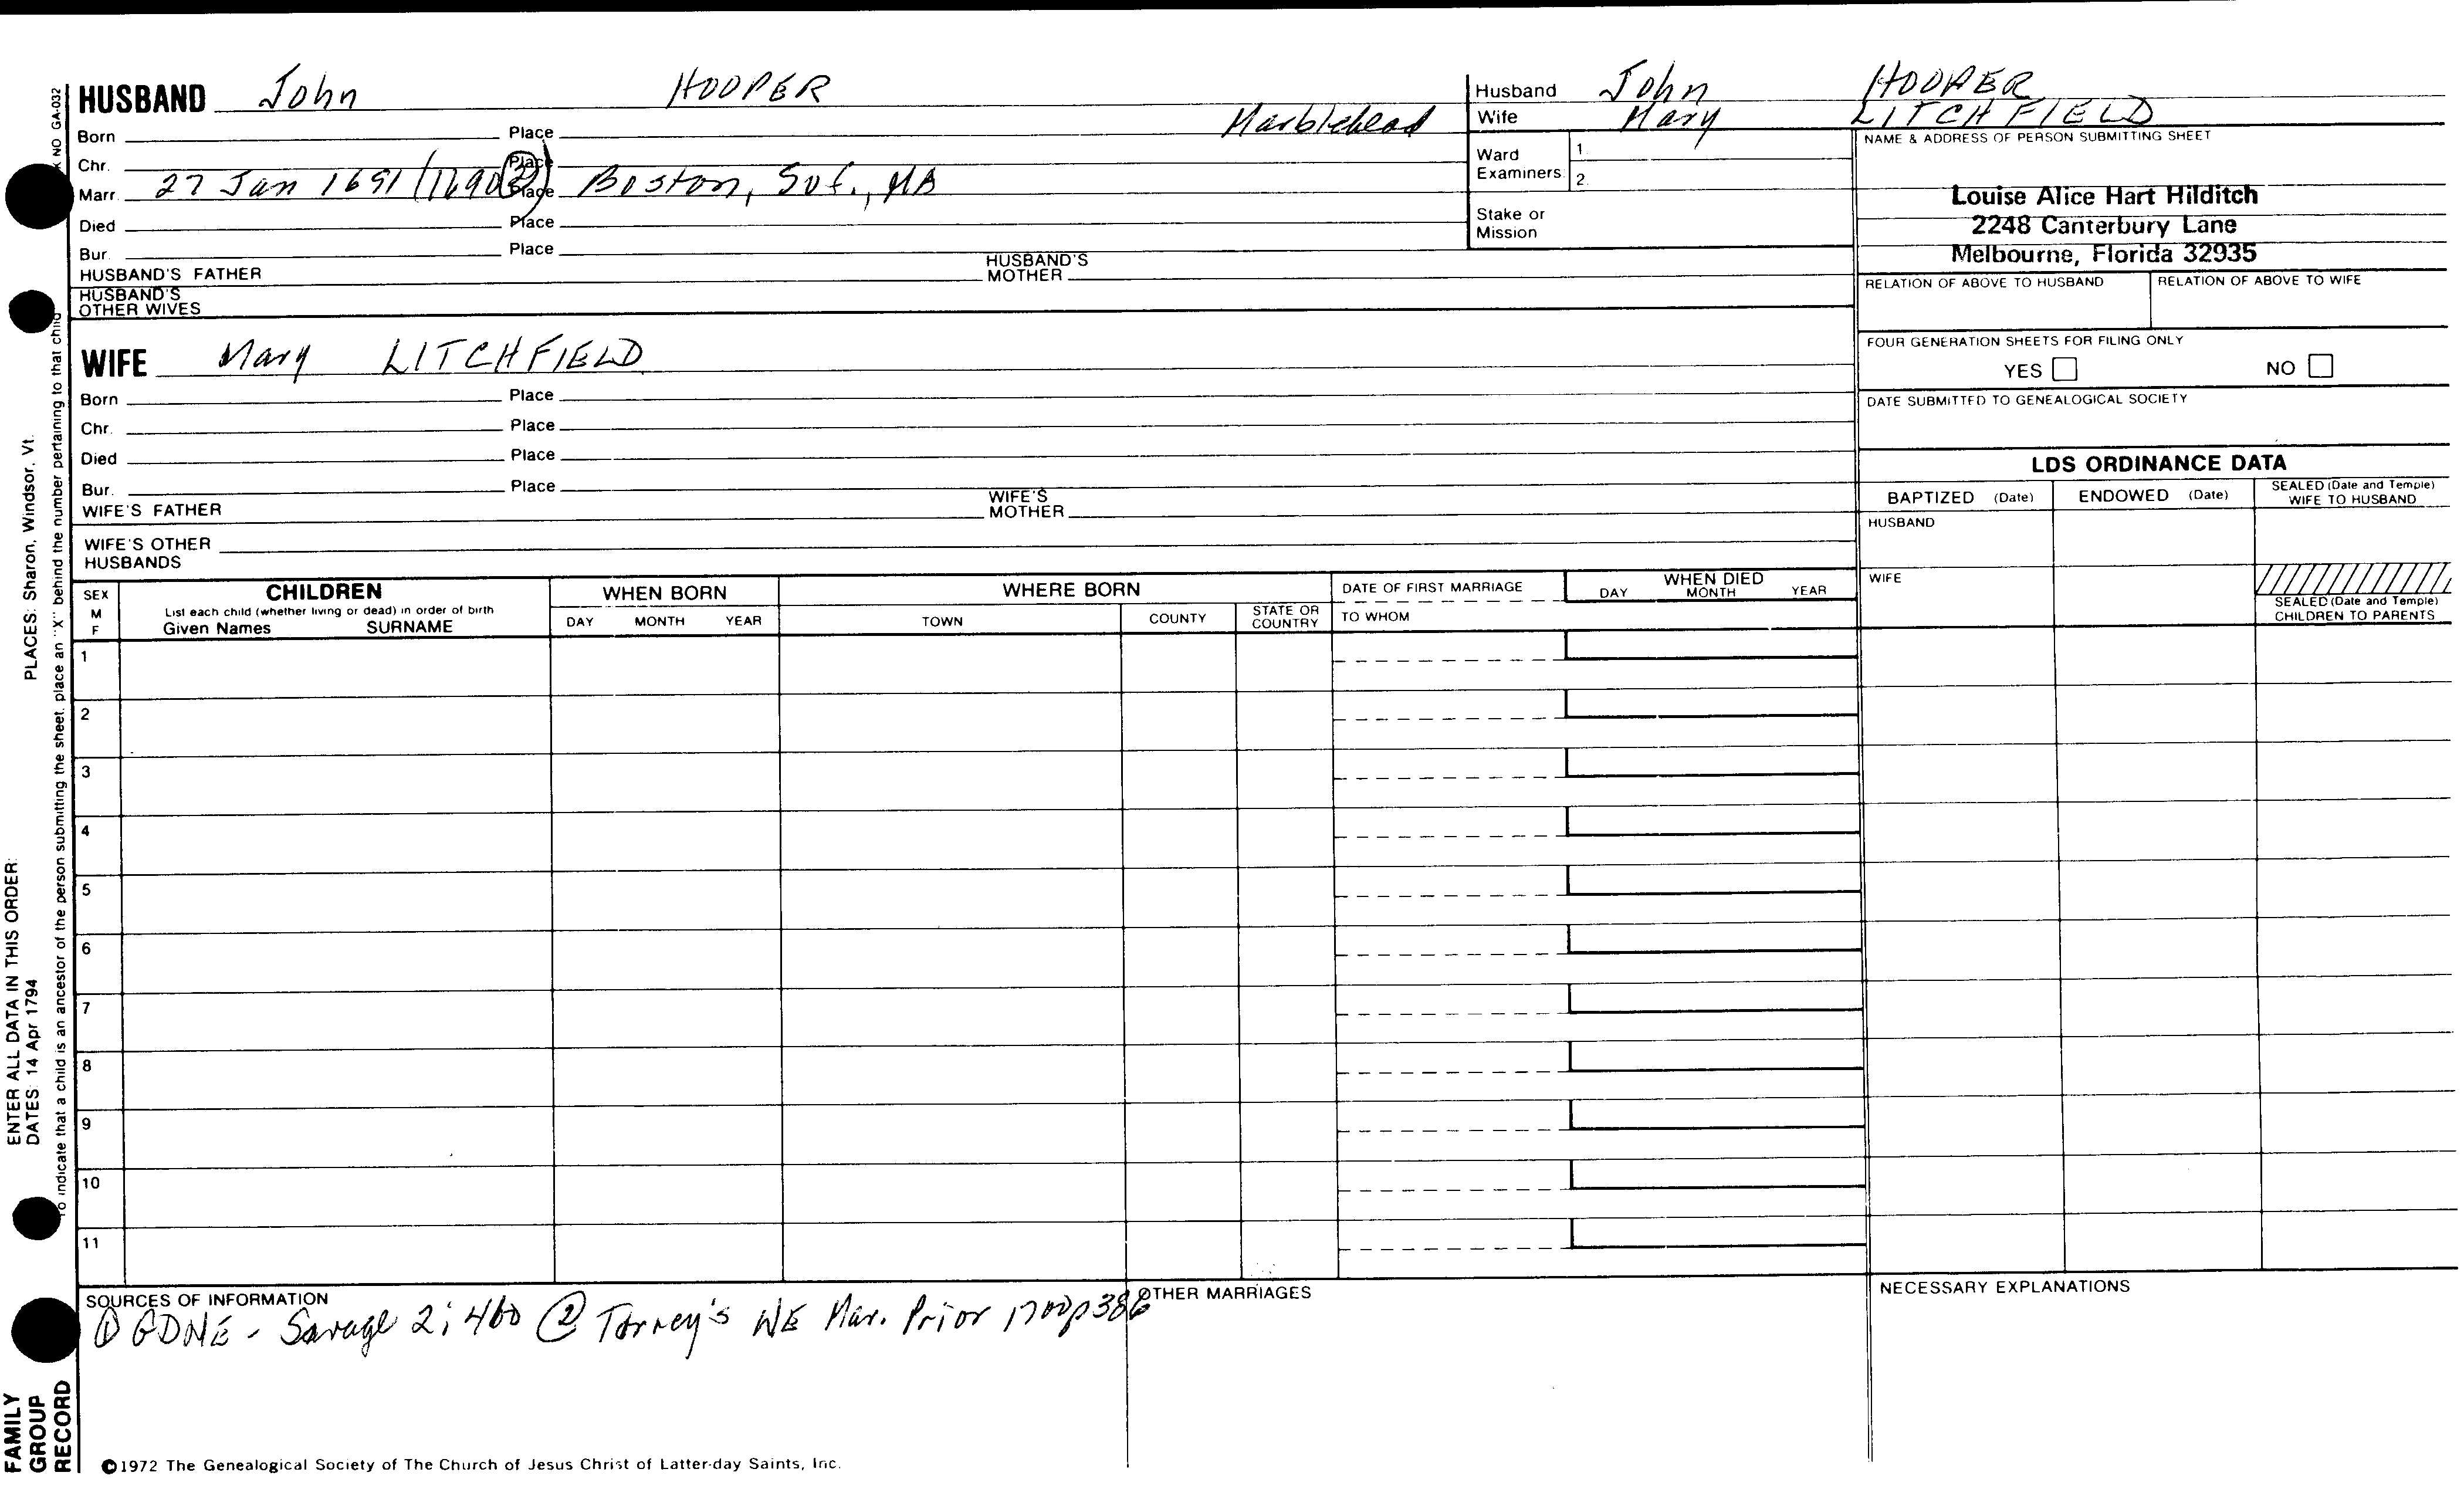 HUSBAND John HOOPER
Marblehead
Born Place
Chr. Place
Marr. 27 Jan 1691 (1690②) Place Boston, Suf., MA
Died Place
Bur. Place
HUSBAND'S FATHER HUSBAND'S MOTHER
HUSBAND'S OTHER WIVES
Husband John HOOPER
Wife Mary LITCHFIELD
Ward Examiners: 1.
2.
Stake or Mission
NAME & ADDRESS OF PERSON SUBMITTING SHEET
Louise Alice Hart Hilditch
2248 Canterbury Lane
Melbourne, Florida 32935
RELATION OF ABOVE TO HUSBAND RELATION OF ABOVE TO WIFE
FOUR GENERATION SHEETS FOR FILING ONLY
YES NO
DATE SUBMITTED TO GENEALOGICAL SOCIETY
WIFE Mary LITCHFIELD
Born Place
Chr. Place
Died Place
Bur. Place
WIFE'S FATHER WIFE'S MOTHER
WIFE'S OTHER HUSBANDS
LDS ORDINANCE DATA
BAPTIZED (Date) ENDOWED (Date) SEALED (Date and Temple) WIFE TO HUSBAND
HUSBAND
WIFE
SEALED (Date and Temple) CHILDREN TO PARENTS
SEX M F
CHILDREN
List each child (whether living or dead) in order of birth
Given Names SURNAME
WHEN BORN
DAY MONTH YEAR
WHERE BORN
TOWN COUNTY STATE OR COUNTRY
DATE OF FIRST MARRIAGE
TO WHOM
WHEN DIED
DAY MONTH YEAR
1
2
3
4
5
6
7
8
9
10
11
SOURCES OF INFORMATION
① GDNE - Savage 2:460 ② Torrey's NE Mar. Prior 1700 p 386
OTHER MARRIAGES
NECESSARY EXPLANATIONS
©1972 The Genealogical Society of The Church of Jesus Christ of Latter-day Saints, Inc.
FAMILY GROUP RECORD
ENTER ALL DATA IN THIS ORDER:
DATES: 14 Apr 1794 PLACES: Sharon, Windsor, Vt.
To indicate that a child is an ancestor of the person submitting the sheet, place an "X" behind the number pertaining to that child
NO GA-032